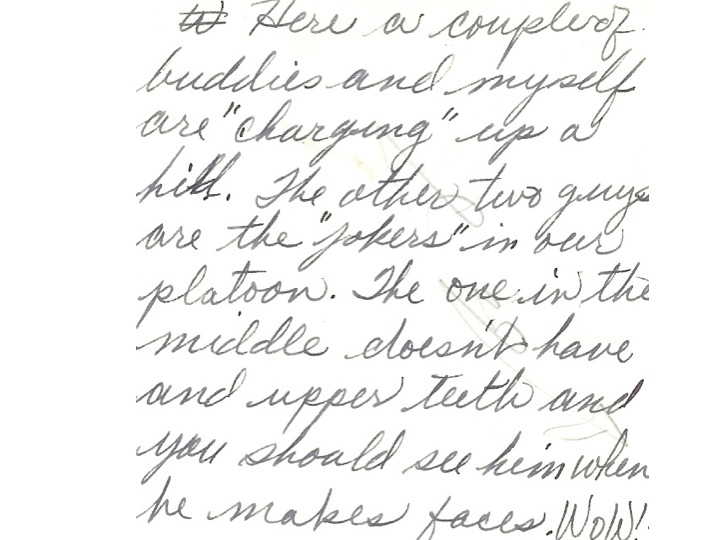 Here a couple of
buddies and myself
are "charging" up a
hill. The other two guys
are the "jokers" in our
platoon. The one in the
middle doesn't have
and upper teeth and
you should see him when
he makes faces. WoW!